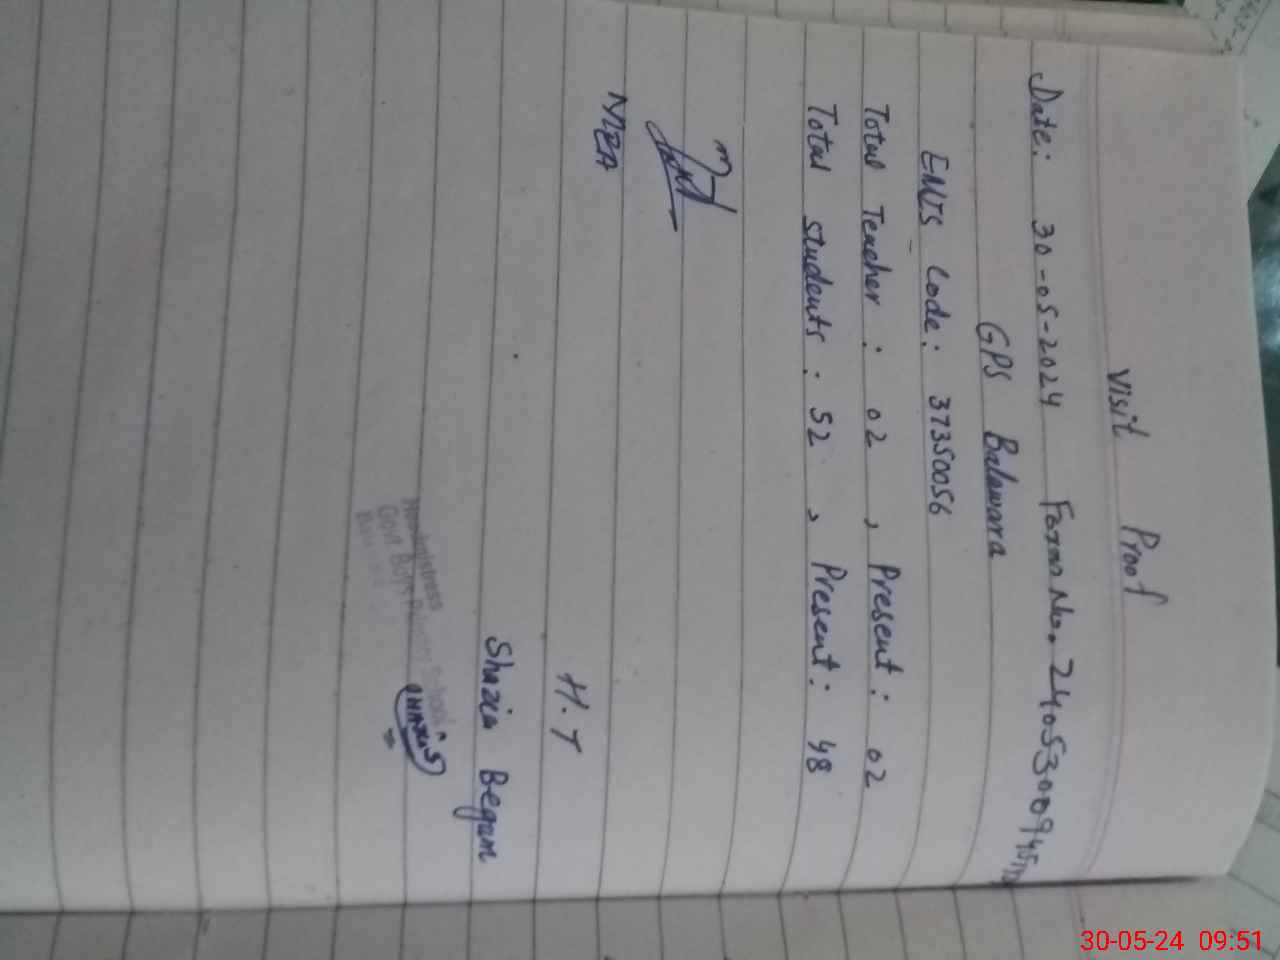 Visit Proof
Date: 30-05-2024 Form No. 240530094513
GPS Balawara
EMIS Code: 37350056
Total Teacher: 02, Present: 02
Total students: 52, Present: 48
H.T
Shazia Begam
Headmistress
Govt. Boys Primary School
30-05-24 09:51